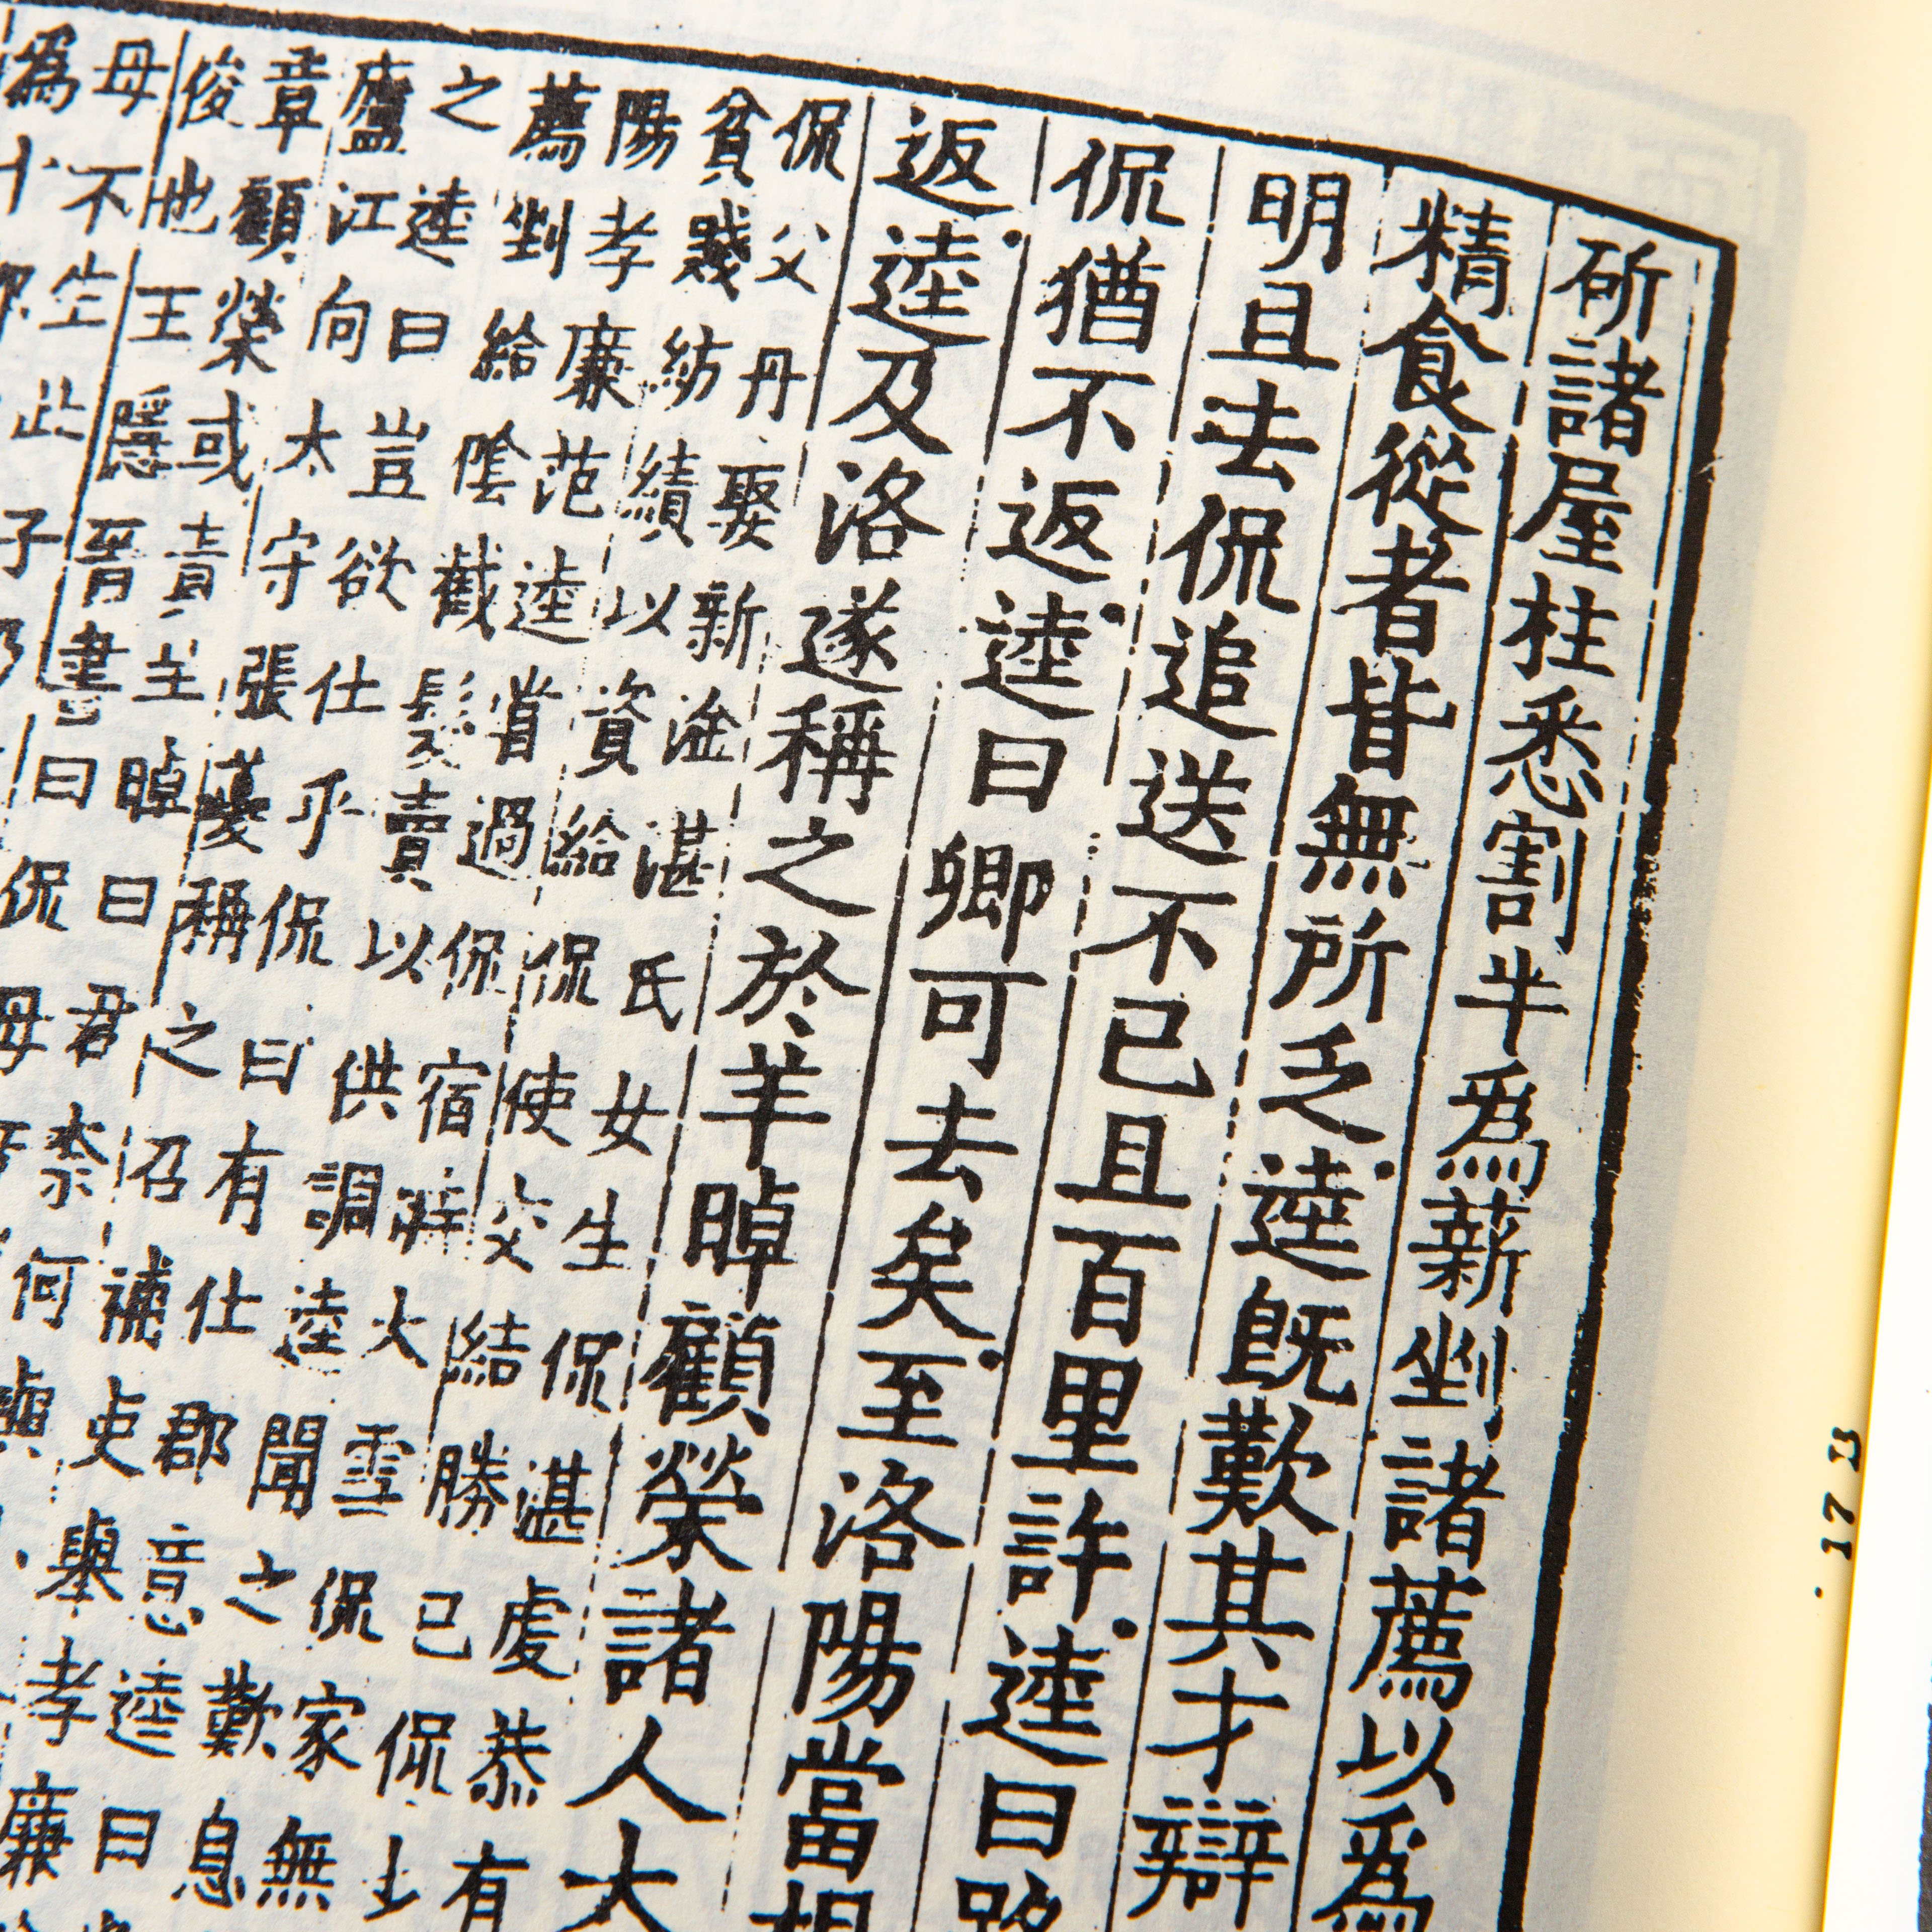 斫諸屋柱悉割半爲薪剉諸薦以爲
精食從者皆無所乏逵既歎其才辯
明且去侃追送不已且百里許逵曰路
侃猶不返逵曰卿可去矣至洛陽當相
返逵及洛遂稱之於羊晫顧榮諸人大
侃父丹娶新淦湛氏女生侃湛虔恭有
貧賤紡績以資給侃使交結勝己侃少
陽孝廉范逵嘗過侃宿時大雪侃家無
薦剉給陰截髮賣以供調逵聞之歎息
之逵曰豈欲仕乎侃曰有仕郡意逵曰
廬江向太守張夔稱之召補吏舉孝廉
章顧榮或責羊晫曰君柰何與
俊也王隱晉書曰侃母
母不生此子乃
爲十郡
17 B